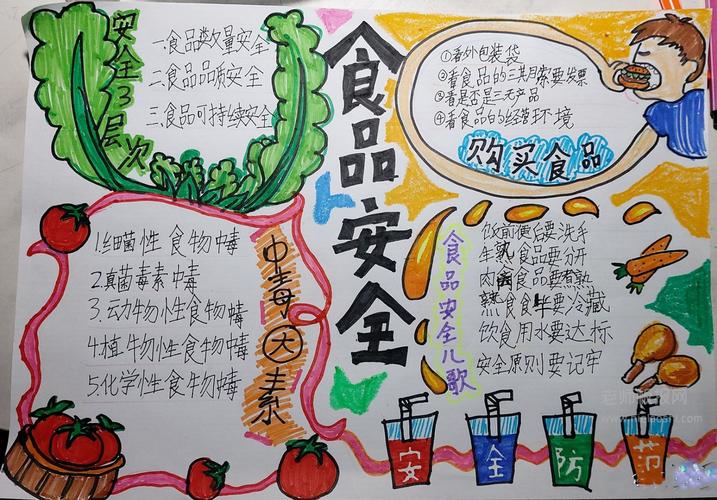 安全3层次
一.食品数量安全
二.食品品质安全
三.食品可持续安全
食品安全
①看外包装袋
②看食品的三期索要发票
③看是否是三无产品
④看食品的经营环境
购买食品
1.细菌性食物中毒
2.真菌毒素中毒
3.动物性食物中毒
4.植物性食物中毒
5.化学性食物中毒
中毒大素
食品安全儿歌
饭前便后要洗手
生熟食品要分开
肉禽食品要煮熟
熟食食半要冷藏
饮食用水要达标
安全原则要记牢
安全防范